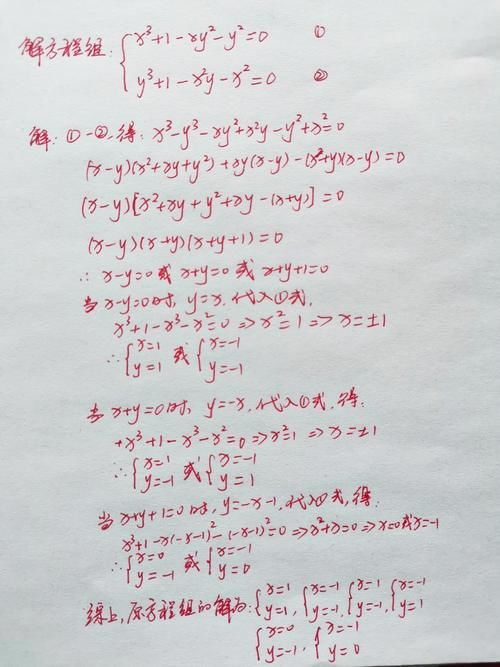 解方程组: { x³+1-xy²-y²=0 ①
y³+1-x²y-x²=0 ②
解: ①-②得: x³-y³-xy²+x²y-y²+x²=0
(x-y)(x²+xy+y²)+xy(x-y)-(x+y)(x-y)=0
(x-y)[x²+xy+y²+xy-(x+y)]=0
(x-y)(x+y)(x+y+1)=0
∴ x-y=0 或 x+y=0 或 x+y+1=0
当 x-y=0时, y=x, 代入①式,
x³+1-x³-x²=0 => x²=1 => x=±1
∴ { x=1 y=1 或 { x=-1 y=-1
当 x+y=0时, y=-x, 代入①式, 得:
+x³+1-x³-x²=0 => x²=1 => x=±1
∴ { x=1 y=-1 或 { x=-1 y=1
当 x+y+1=0时, y=-x-1, 代入①式, 得:
x³+1-x(-x-1)²-(-x-1)²=0 => x²+x=0 => x=0 或 x=-1
∴ { x=0 y=-1 或 { x=-1 y=0
综上, 原方程组的解为: { x=1 y=1, { x=-1 y=-1, { x=1 y=-1, { x=-1 y=1
{ x=0 y=-1, { x=-1 y=0